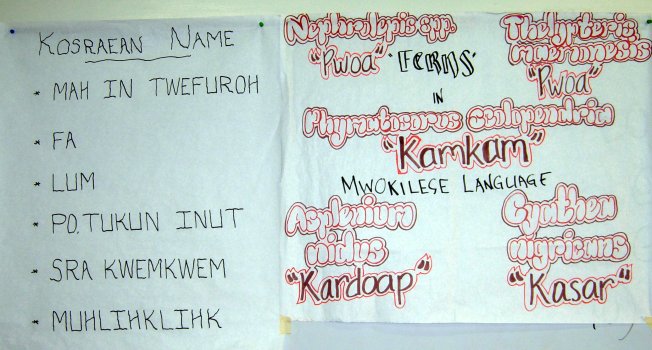 KOSRAEAN NAME
* MAH IN TWEFUROH
* FA
* LUM
* PO.TUKUN INUT
* SRA KWEMKWEM
* MUHLIHKLIHK
Nephrolepis spp.
"Pwoa"
'FERNS'
Thelypteris
maemonesis
"Pwoa"
IN
Phymatosorus scolopendria
"Kamkam"
MWOKILESE LANGUAGE
Asplenium
nidus
"Kardoap"
Cyathea
nigricans
"Kasar"